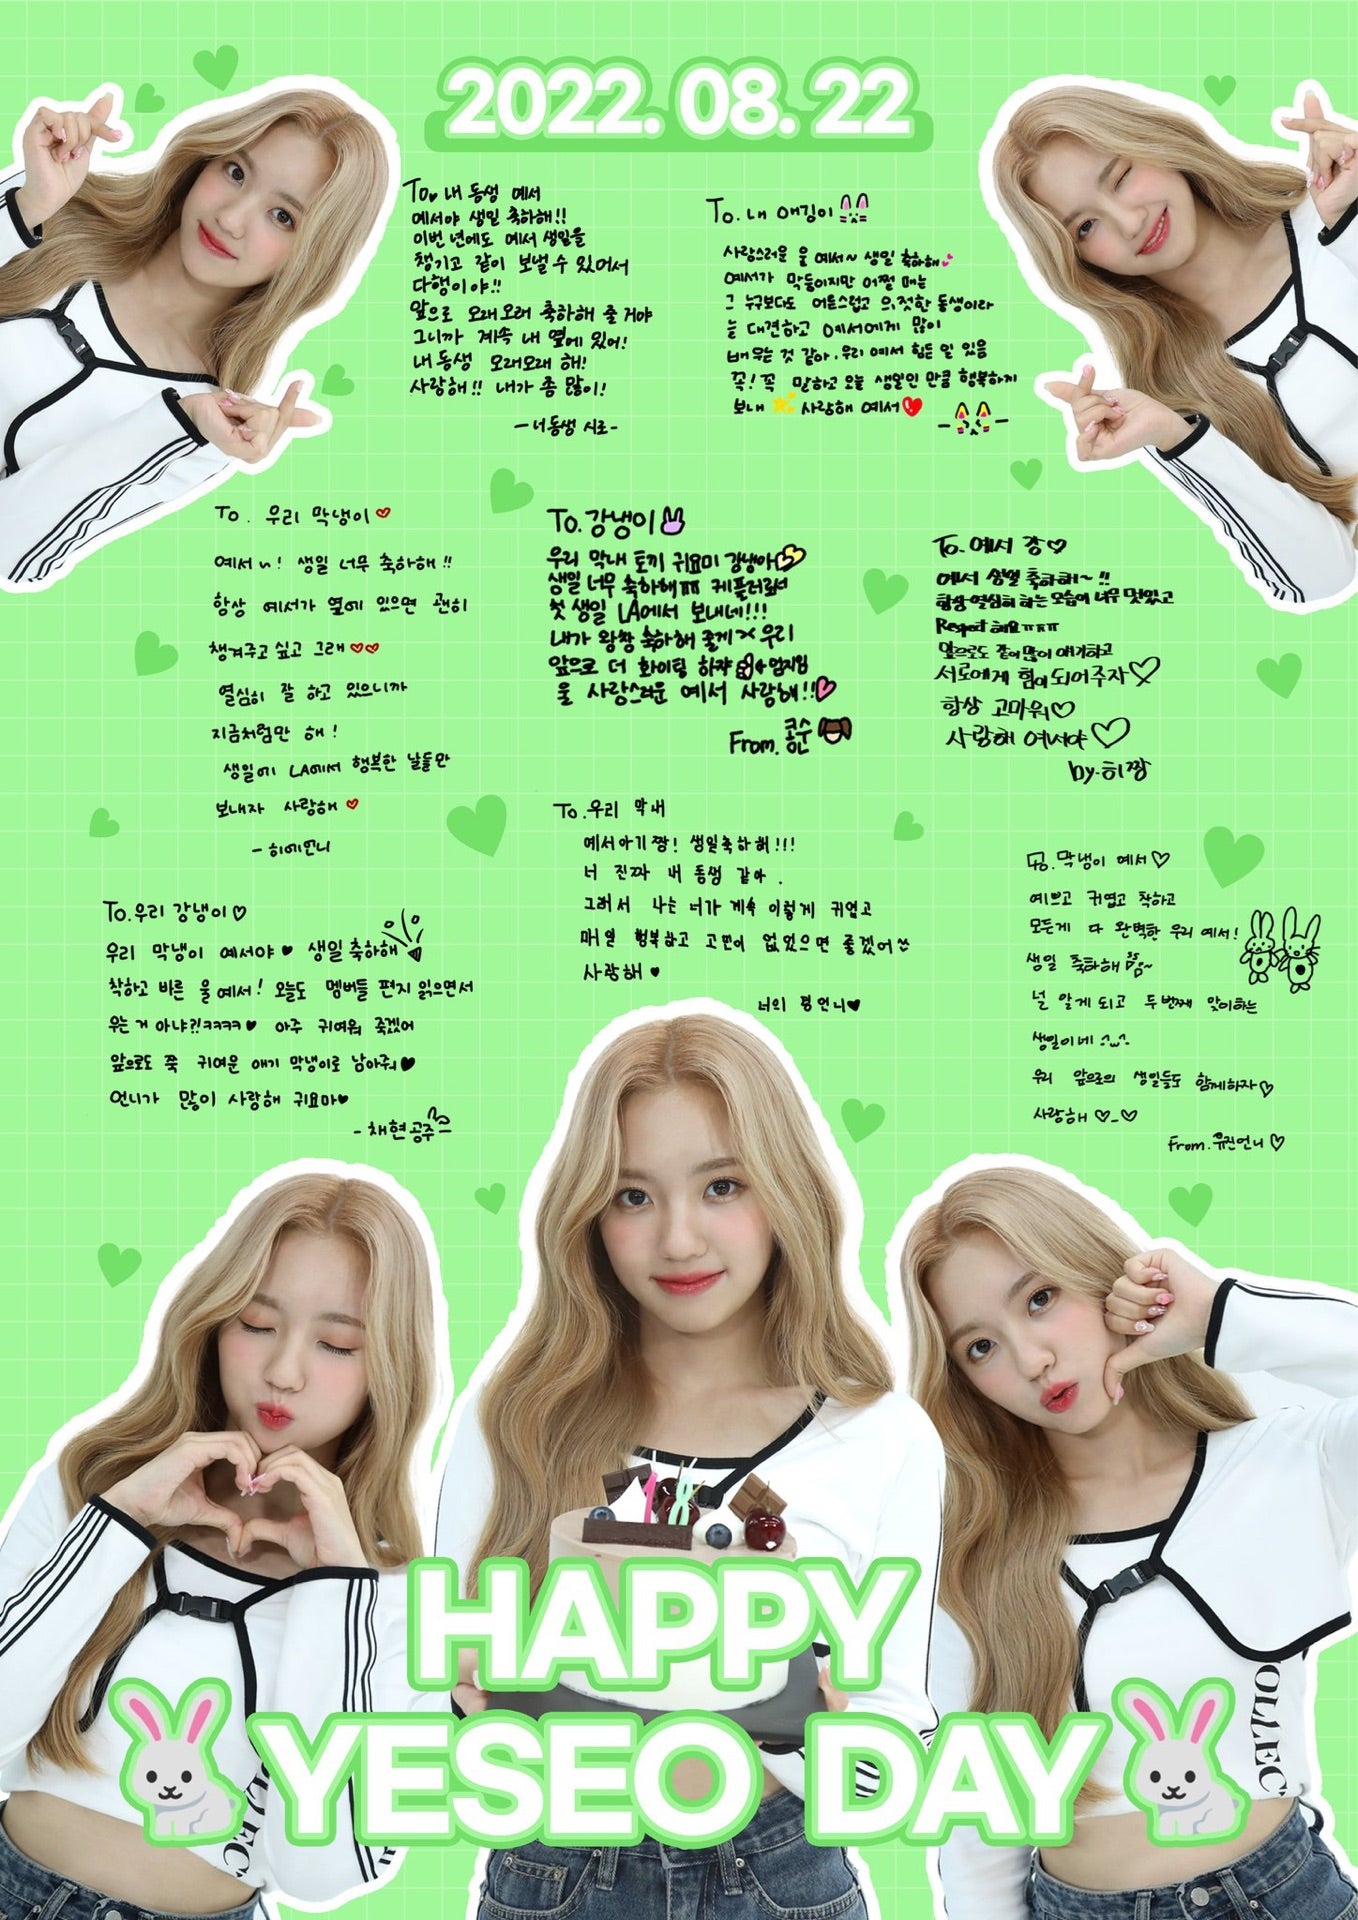 2022. 08. 22
To♥ 내 동생 예서
예서야 생일 축하해!!
이번 년에도 예서 생일을
챙기고 같이 보낼 수 있어서
다행이야!!
앞으로 오래오래 축하해 줄 거야
그니까 계속 내 옆에 있어!
내 동생 오래오래 해!
사랑해!! 내가 좀 많이!
- 너동생 시로 -
To. 내 애깅이
사랑스러운 울 예서~ 생일 축하해💕
예서가 막둥이지만 어쩔 때는
그 누구보다도 어른스럽고 의젓한 동생이라
늘 대견하고 예서에게 많이
배우는 것 같아. 우리 예서 힘든 일 있음
꼭! 꼭 말하고 오늘 생일인 만큼 행복하게
보내 사랑해 예서❤
To. 우리 막냉이♡
예서~! 생일 너무 축하해!!
항상 예서가 옆에 있으면 괜히
챙겨주고 싶고 그래♡♡
열심히 잘 하고 있으니까
지금처럼만 해!
생일에 LA에서 행복한 날들만
보내자 사랑해♡
- 히에언니
To. 강냉이
우리 막내 토끼 귀요미 강냉아
생일 너무 축하해ㅠㅠ 케플러로서
첫 생일 LA에서 보내네!!!
내가 왕창 축하해 줄게>< 우리
앞으로 더 화이팅 하쟈 ← 엄지임
울 사랑스러운 예서 사랑해!!♡
From.
To. 예서 강♡
예서 생일 축하해~!!
항상 열심히 하는 모습이 너무 멋있고
Respect 해요ㅠㅠㅠ
앞으로도 같이 많이 얘기하고
서로에게 힘이 되어주자♡
항상 고마워♡
사랑해 예서야♡
by.히짱
To. 우리 막내
예서아기짱! 생일축하해!!!
너 진짜 내 동생 같아.
그래서 나는 너가 계속 이렇게 귀엽고
매일 행복하고 고민이 없었으면 좋겠어
사랑해♥
너의 언니♥
To. 우리 강냉이♡
우리 막냉이 예서야♥ 생일축하해
착하고 바른 울예서! 오늘도 멤버들 편지 읽으면서
우는거 아냐?!ㅋㅋㅋㅋ♥ 아주 귀여워 죽겠어
앞으로도 쭉 귀여운 애기 막냉이로 남아줘♥
언니가 많이 사랑해 귀요마♥
- 채현공주
To. 막냉이 예서♡
예쁘고 귀엽고 착하고
모든게 다 완벽한 우리 예서!
생일 축하해~
널 알게 되고 두번째 맞이하는
생일이네
우리 앞으로의 생일들도 함께하자♡
사랑해 ♡_♡
From. 유진언니♡
18
HAPPY
YESEO DAY